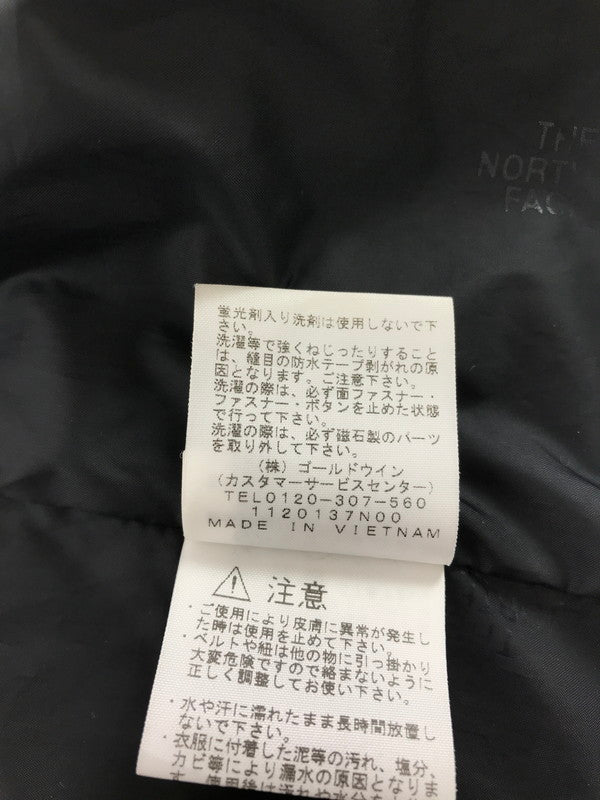 THE
NORTH
FAC
蛍光剤入り洗剤は使用しないで下
さい。
洗濯等で強くねじったりすること
は、縫目の防水テープ剥がれの原
因となります。ご注意下さい。
洗濯の際は、必ず面ファスナー・
ファスナー・ボタンを止めた状態
で行って下さい。
洗濯の際は、必ず磁石製のパーツ
を取り外して下さい。
(株) ゴールドウイン
(カスタマーサービスセンター)
TEL0120-307-560
1120137N00
MADE IN VIETNAM
注意
・ご使用により皮膚に異常が発生し
た時は使用を止めて下さい。
・ベルトや紐は他の物に引っ掛かり
大変危険ですので絡まないように
正しく調整してお使い下さい。
・水や汗に濡れたまま長時間放置し
ないで下さい。
・衣服に付着した泥等の汚れ、塩分、
カビ等により漏水の原因となりま
す。使用後は汚れや水分を